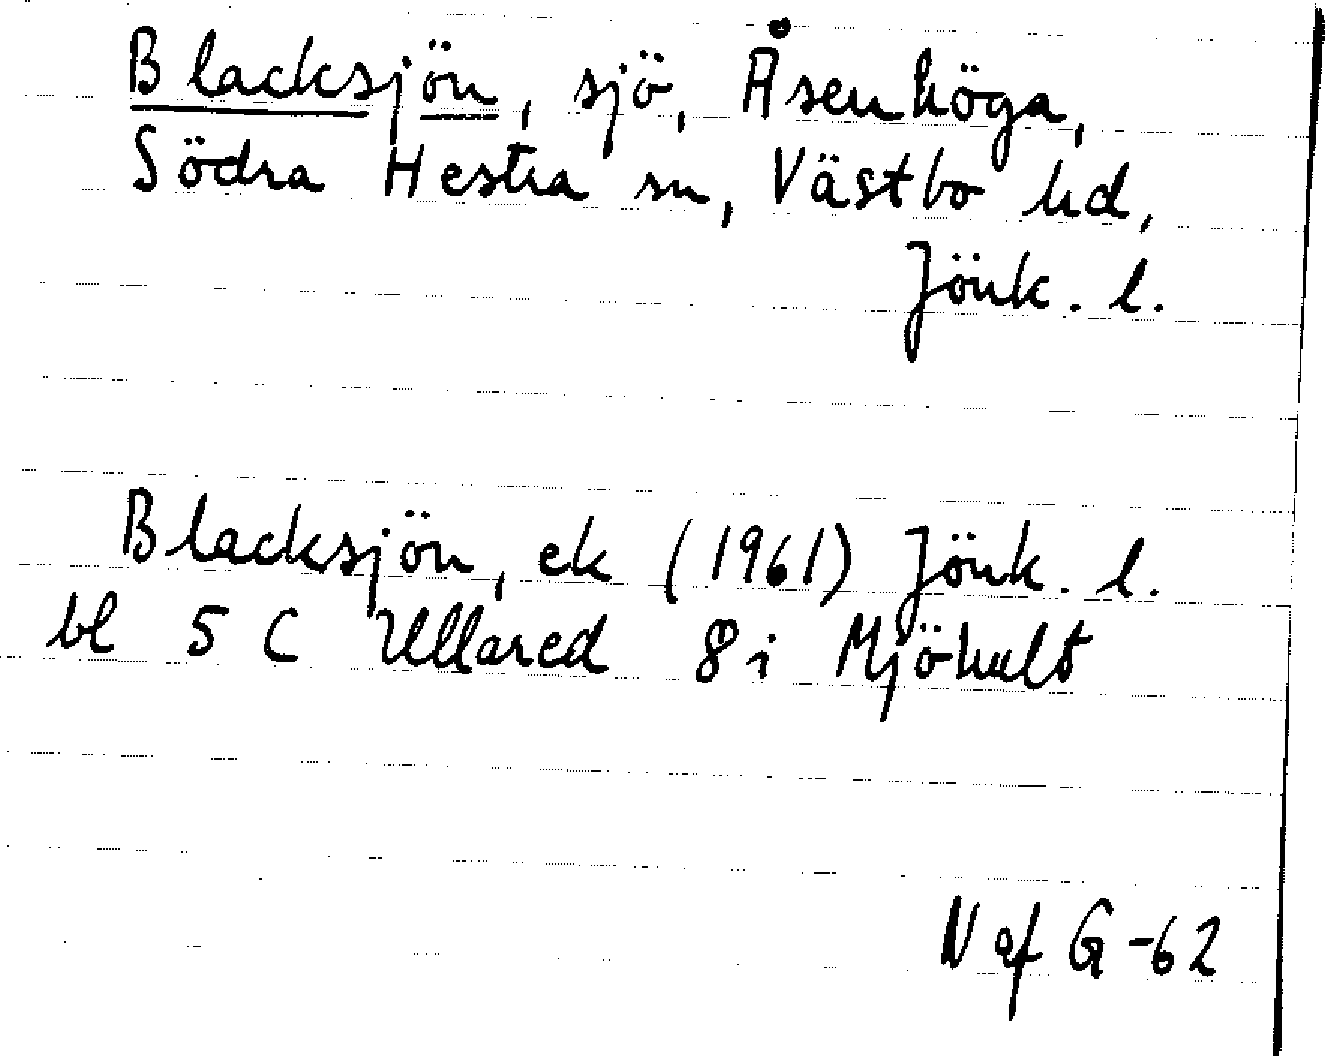 Blacksjön, sjö, Åsenhöga,
Södra Hestra sn, Västbo hd,
Jönk. l.
Blacksjön, ek (1961) Jönk. l.
bl 5 C Ullared 8 i Mjöhult
N af G-62